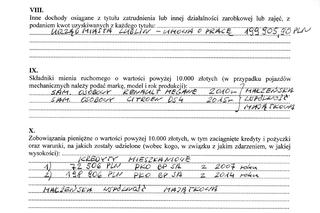 VIII.
Inne dochody osiągane z tytułu zatrudnienia lub innej działalności zarobkowej lub zajęć, z
podaniem kwot uzyskiwanych z każdego tytułu:
URZĄD MIASTA LUBLIN - UMOWA O PRACĘ 199 905,90 PLN
IX.
Składniki mienia ruchomego o wartości powyżej 10.000 złotych (w przypadku pojazdów
mechanicznych należy podać markę, model i rok produkcji):
SAM. OSOBOWY RENAULT MEGANE 2010r. MAŁŻEŃSKA
SAM. OSOBOWY CITROEN DS4 2015r. WSPÓLNOŚĆ
MAJĄTKOWA
X.
Zobowiązania pieniężne o wartości powyżej 10.000 złotych, w tym zaciągnięte kredyty i pożyczki
oraz warunki, na jakich zostały udzielone (wobec kogo, w związku z jakim zdarzeniem, w jakiej
wysokości):
KREDYTY MIESZKANIOWE
1) 72 506 PLN PKO BP SA z 2007 roku
2) 198 906 PLN PKO BP SA z 2014 roku
MAŁŻEŃSKA WSPÓLNOŚĆ MAJĄTKOWA